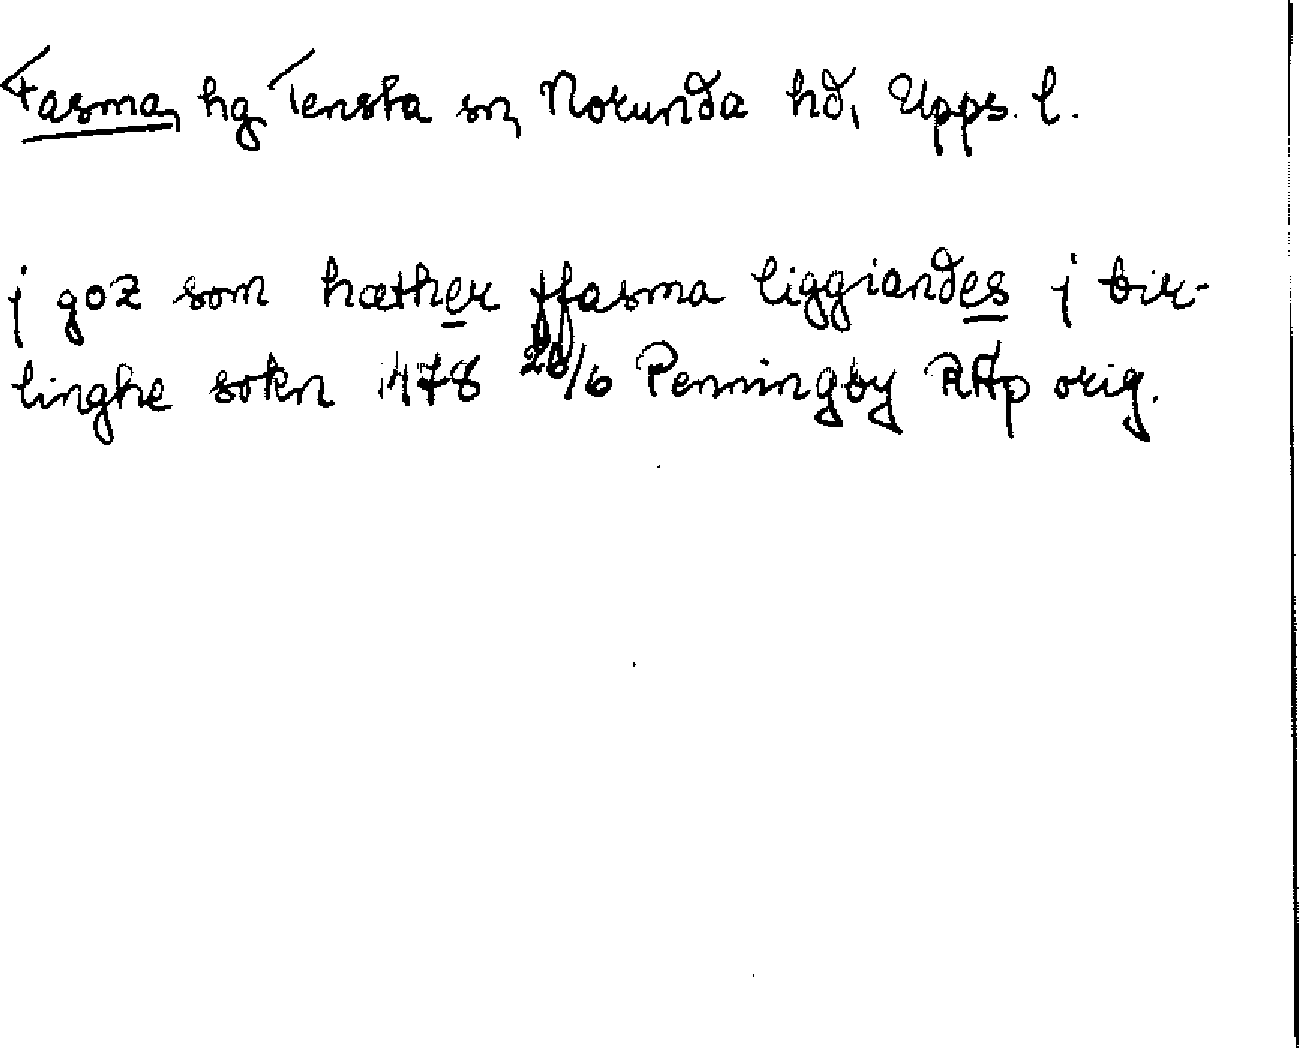 Fasma, hg Tensta sn, Norunda hd, Upps. l.
j goz som hæther ffasma liggiandes j bir-
linghe sokn 1478 26/6 Penningby RAp orig.